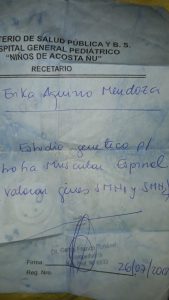 TERIO DE SALUD PÚBLICA Y B. S.
SPITAL GENERAL PEDIÁTRICO
"NIÑOS DE ACOSTA ÑU"
RECETARIO
Erika Aquino Mendoza
Estudio genetico p/
Muscular Espinal
valorar genes SMN1 y SMN2
Firma
Reg. Nro.
26/07/200